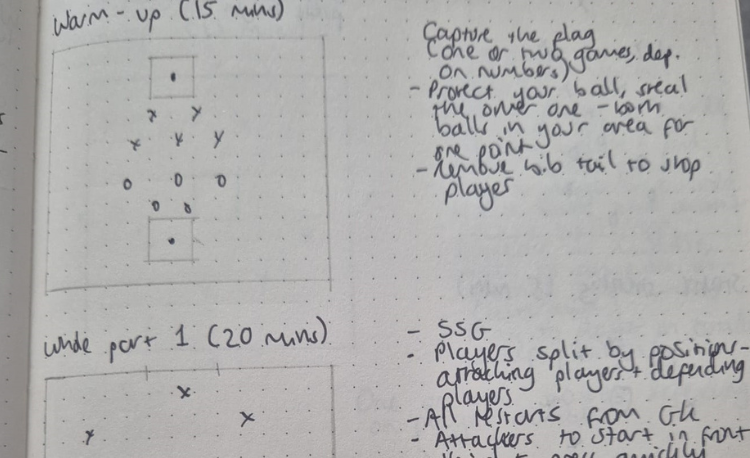 Warm-up (15 mins)
Capture the flag
(one or two games, dep.
on numbers)
- Protect your ball, steal
the other one - both
balls in your area for
one point
- remove bib tail to stop
player
Whole part 1 (20 mins)
- SSG
- Players split by positions-
attacking players + defending
players
- All restarts from GK
- Attackers to start in front
quickly